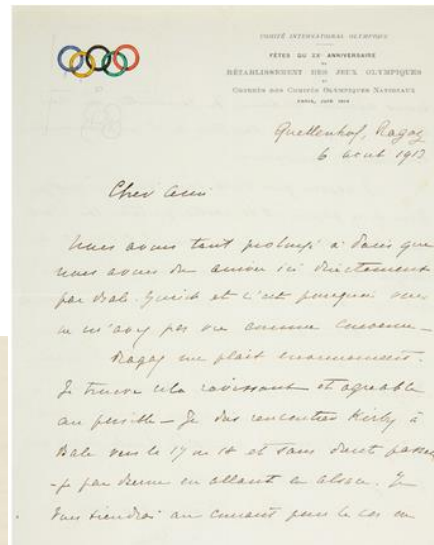 COMITÉ INTERNATIONAL OLYMPIQUE
FÊTES DU XXe ANNIVERSAIRE
DU
RÉTABLISSEMENT DES JEUX OLYMPIQUES
ET
CONGRÈS DES COMITÉS OLYMPIQUES NATIONAUX
PARIS, JUIN 1914
Quellenhof, Ragaz
6 août 1913
Cher ami
Nous avons tant prolongé à Paris que
nous avons du arriver ici directement
par Bale. Zurich et c'est pourquoi vous
ne m'avez pas vu comme convenu –
Ragaz me plait énormément.
Je trouve cela ravissant et agréable
au possible – Je dois rencontrer Kirby à
Bale vers le 17 ou 18 et sans doute passerai
-je par Berne en allant en Alsace. Je
vous tiendrai au courant pour le cas où